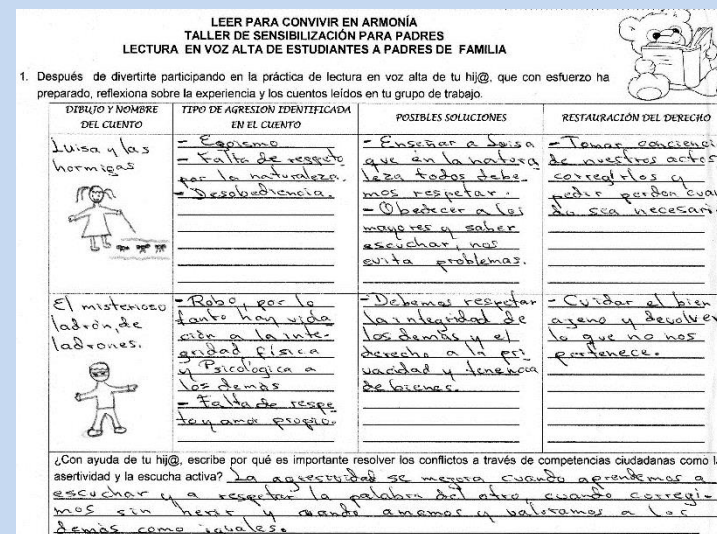 LEER PARA CONVIVIR EN ARMONÍA
TALLER DE SENSIBILIZACIÓN PARA PADRES
LECTURA EN VOZ ALTA DE ESTUDIANTES A PADRES DE FAMILIA
1. Después de divertirte participando en la práctica de lectura en voz alta de tu hij@, que con esfuerzo ha
preparado, reflexiona sobre la experiencia y los cuentos leídos en tu grupo de trabajo.
DIBUJO Y NOMBRE
DEL CUENTO
TIPO DE AGRESION IDENTIFICADA
EN EL CUENTO
POSIBLES SOLUCIONES
RESTAURACIÓN DEL DERECHO
Luisa y las
hormigas
- Egoismo
- Falta de respeto
por la naturaleza.
- Desobediencia.
- Enseñar a Luisa
que en la natura
leza todos debe
mos respetar.
- Obedecer a los
mayores y saber
escuchar, nos
evita problemas.
- Tomar concienci
de nuestros actos
corregirlos y
pedir perdon cuan
do sea necesari
El misterioso
ladrón de
ladrones.
- Robo, por lo
tanto hay viola
ción a la inte-
gridad física
y Psicológica a
los demás
- Falta de respe
to y amor propio.
- Debemos respetar
la integridad de
los demás y el
derecho a la pri
vacidad y tenencia
de bienes.
- Cuidar el bien
ajeno y devolver
lo que no nos
pertenece.
¿Con ayuda de tu hij@, escribe por qué es importante resolver los conflictos a través de competencias ciudadanas como l
asertividad y la escucha activa? La se mejora cuando aprendemos a
escuchar y a respetar la palabra del otro, cuando corregi-
mos sin herir y cuando amamos y valoramos a los
demás como iguales.